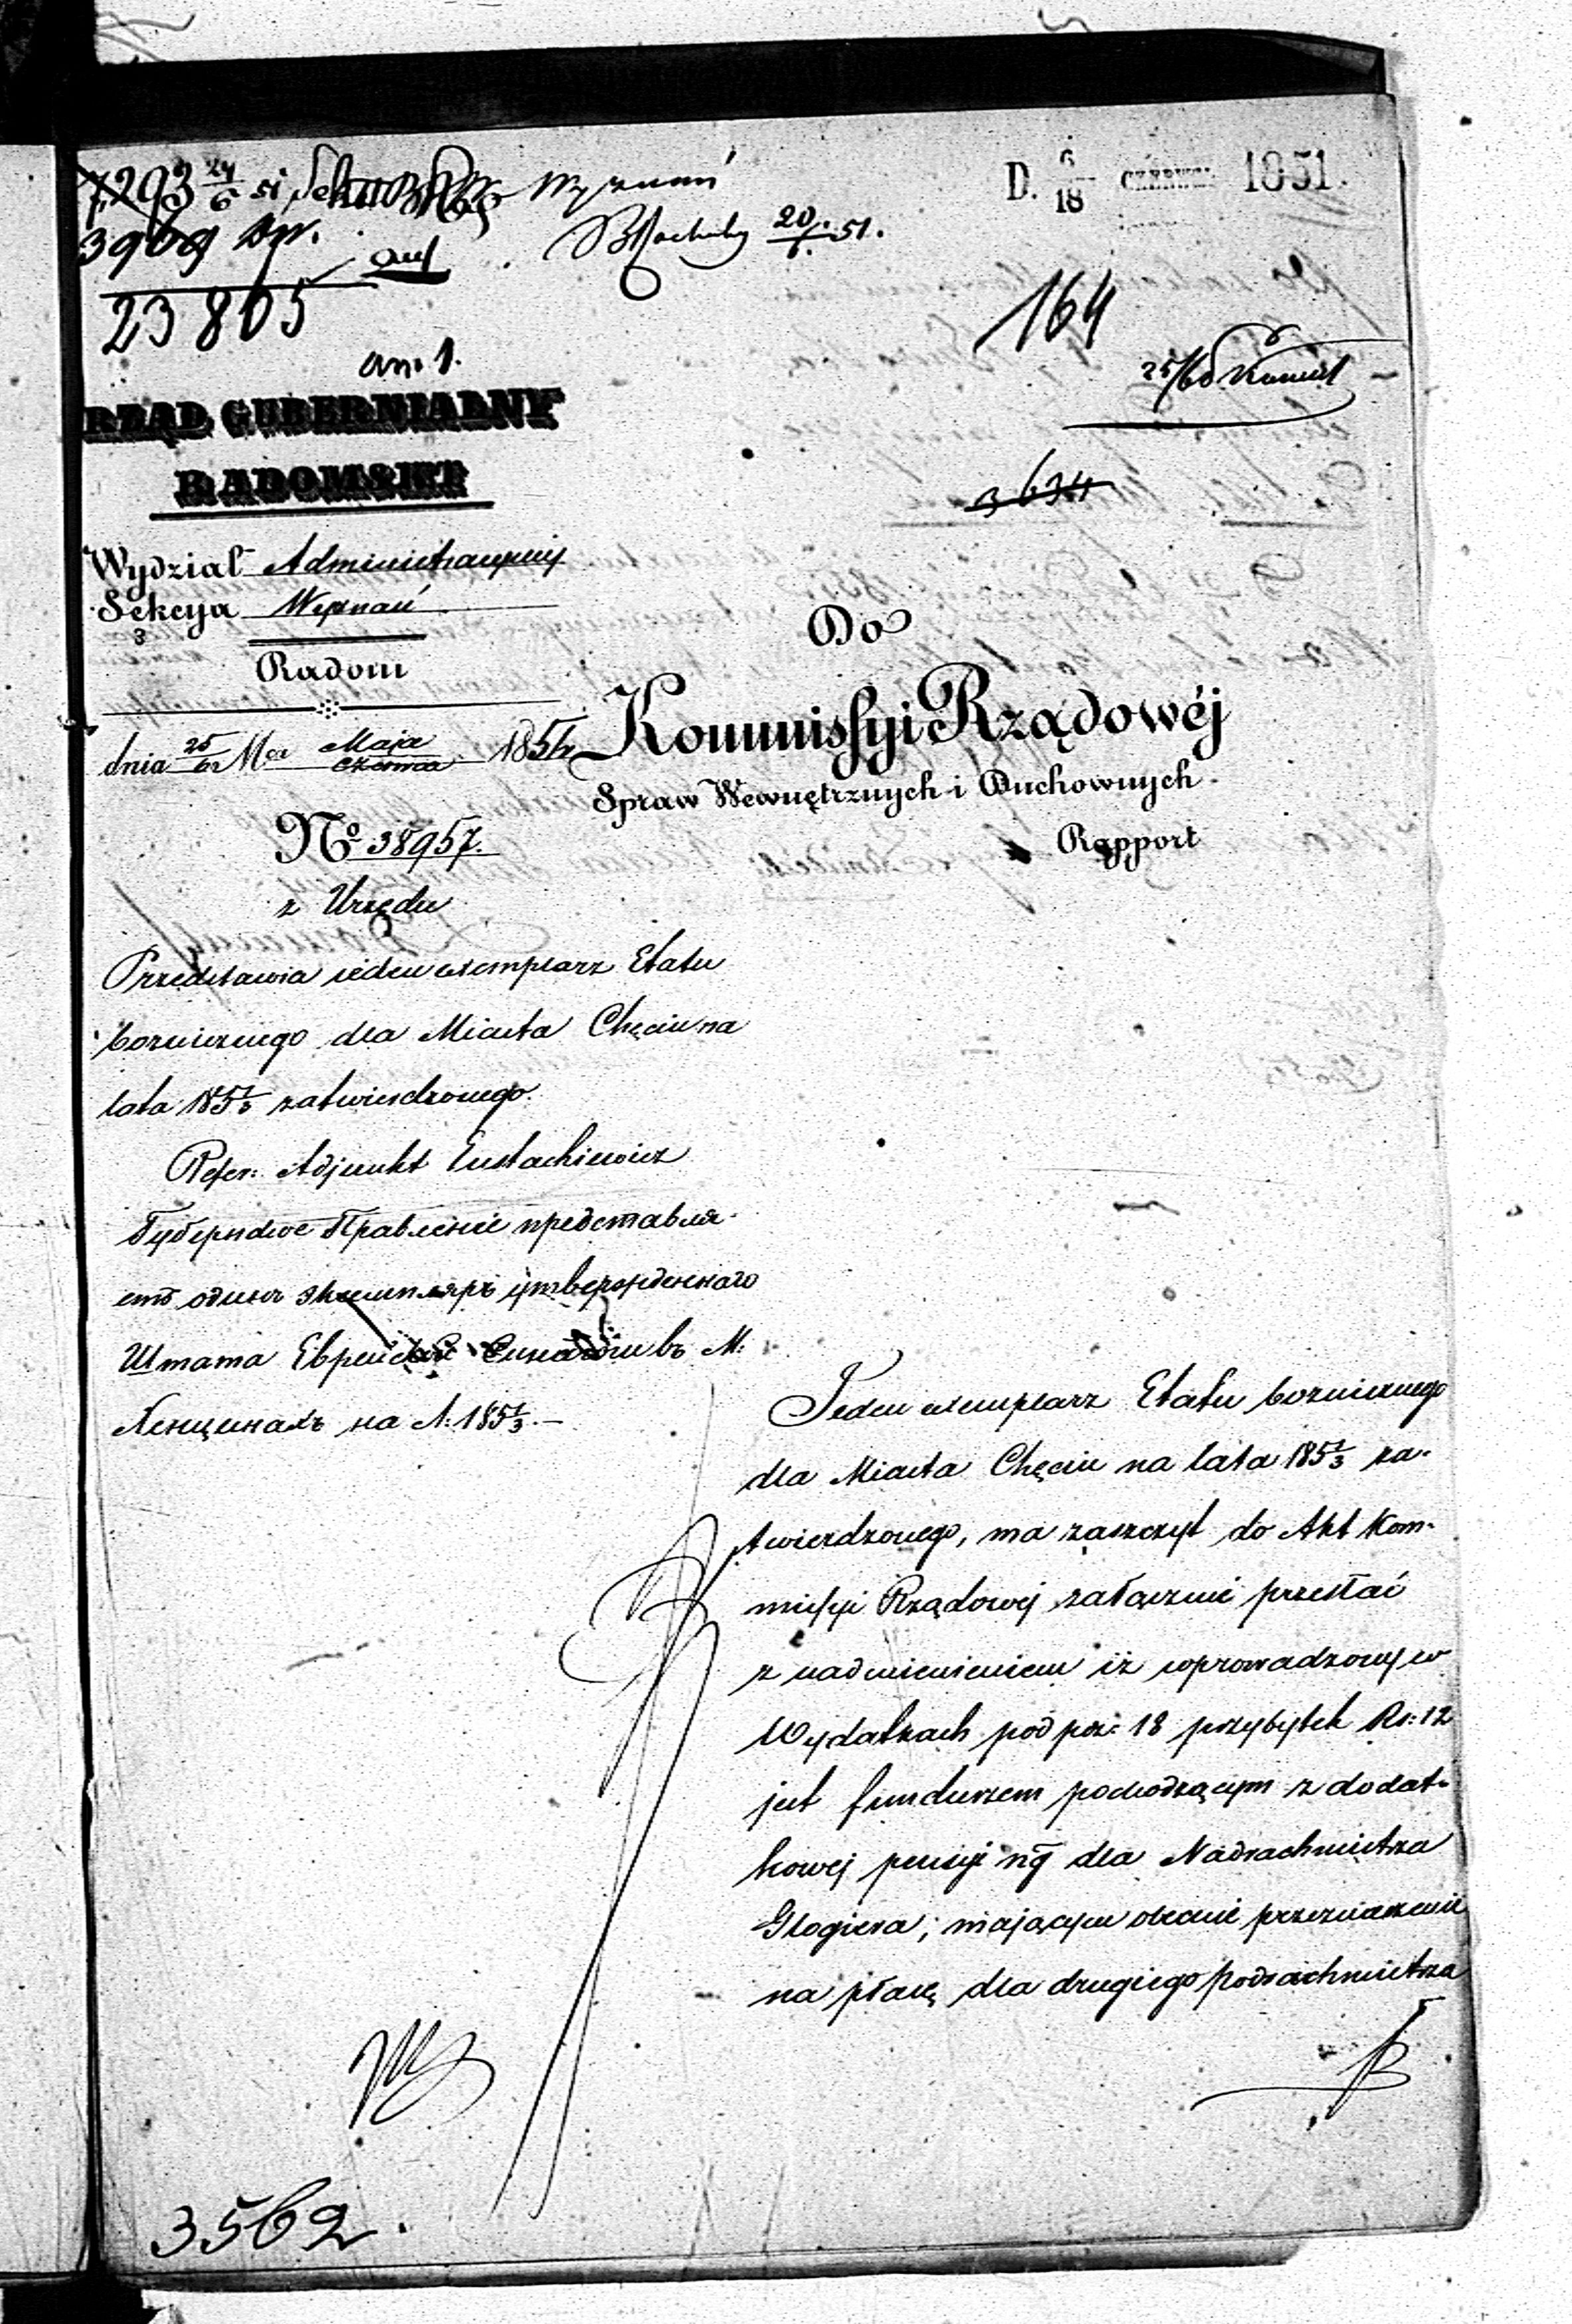 7293 24/6 51
3909
23805
an. 1.
D. 6/18 CZERWCA 1851.
20/6. 51.
164
25/6
3634
RZĄD GUBERNIALNY
RADOMSKI
Wydział Administracyjny
Sekcya Wyznań
3
Radom
dnia 25/6 Mca Maja/Czerwca 1851
No 38957.
z Urzędu
Do
Kommissyi Rządowéj
Spraw Wewnętrznych i Duchownych
Rapport
Przedstawia ieden exemplarz Etatu
boznicznego dla Miasta Chęcin na
lata 185 1/3 zatwierdzonego.
Refer: Adjunkt Eustachiewicz
Губернское Правленіе представля-
етъ одинъ экземпляръ утвержденнаго
Штата Еврейской въ М:
Хенцинахъ на Л: 185 1/3.—
Jeden exemplarz Etatu boznicznego
dla Miasta Chęcin na lata 185 1/3 za-
twierdzonego, ma zaszczyt do Akt Kom-
missyi Rządowej załącznie przesłać
z nadmienieniem iż wprowadzony w
Wydatkach pod poz: 18 przybytek Rs: 12
jest funduszem pochodzącym z dodat-
kowej pensyi dla Nadrachmistrza
Glogiera; mającym obecnie przeznaczenie
na płacę dla drugiego podrachmistrza
3562.